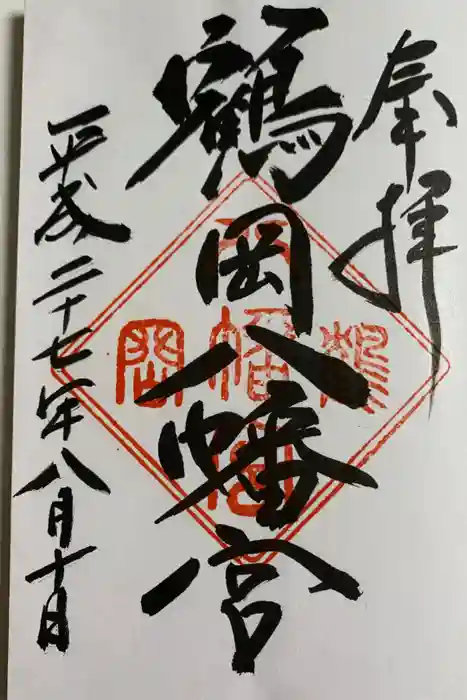 奉拝
鶴岡八幡宮
平成二十七年八月十日